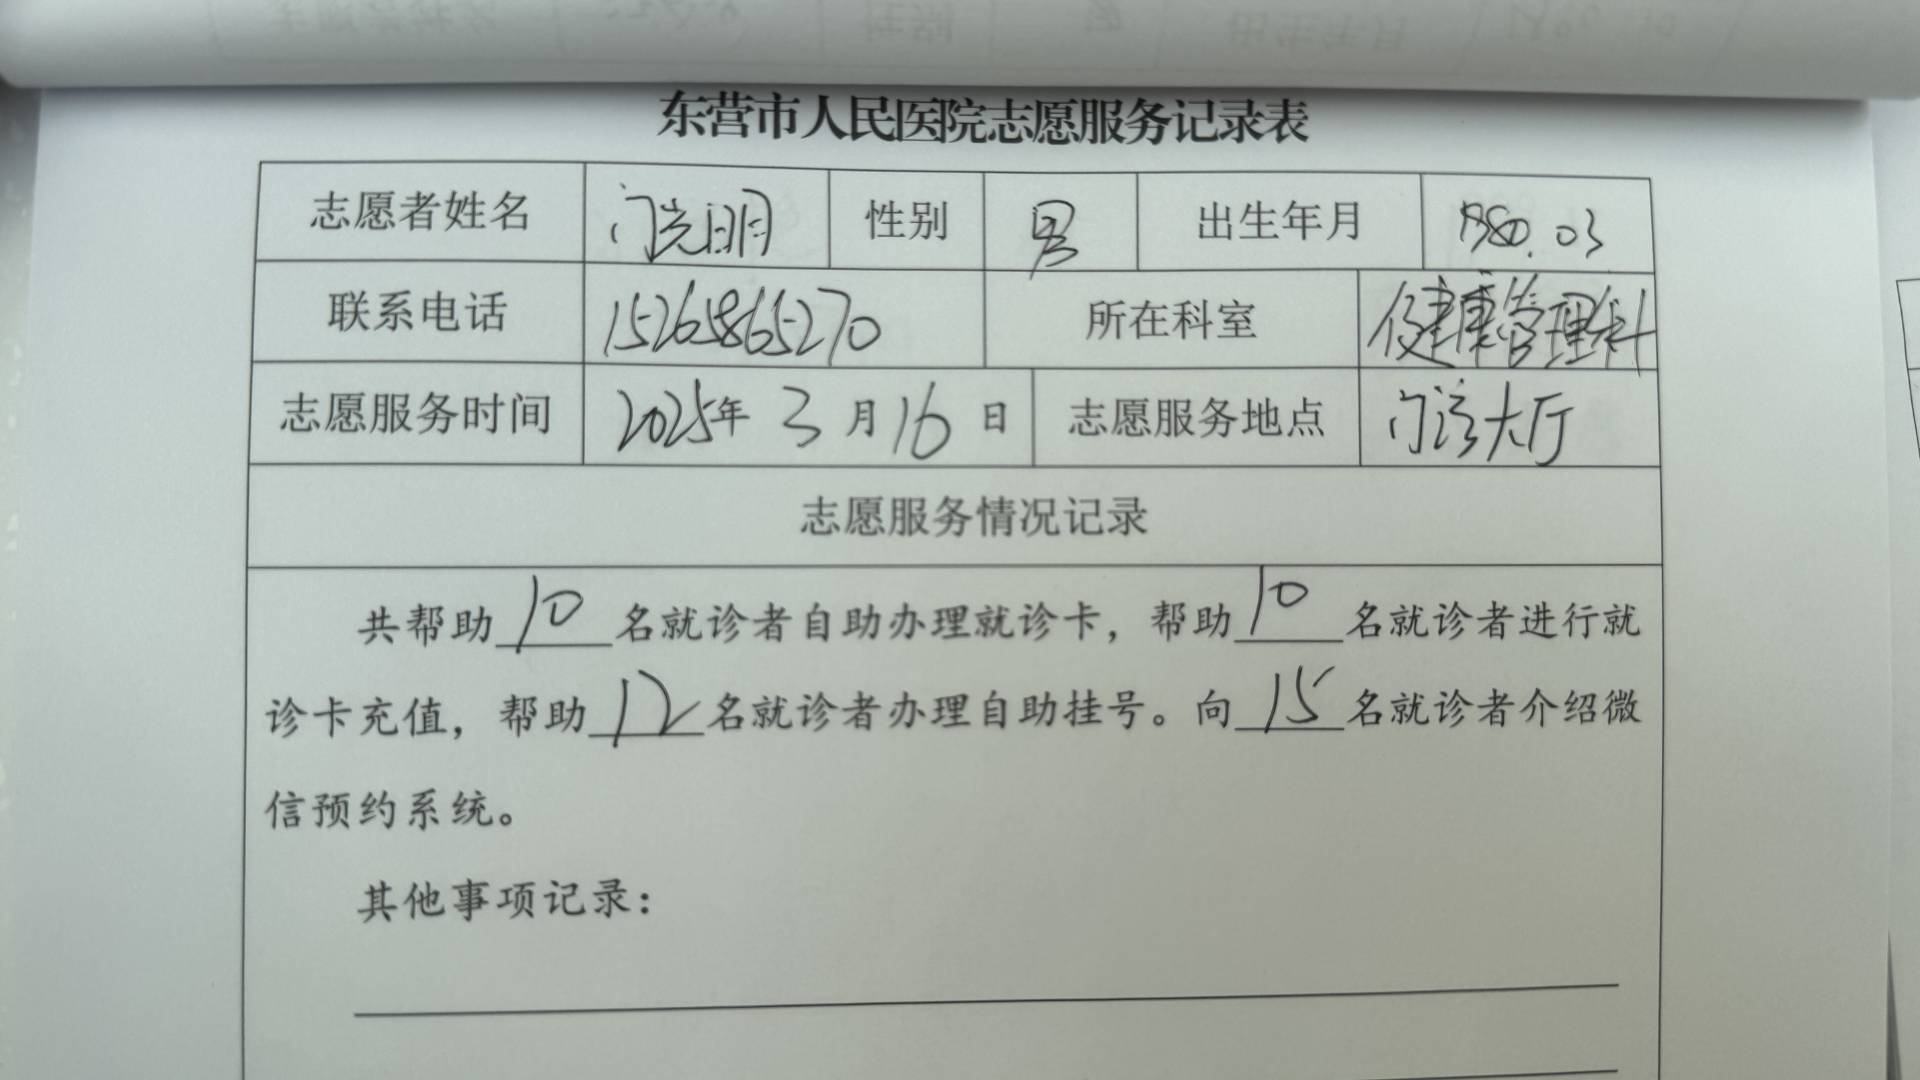 东营市人民医院志愿服务记录表
志愿者姓名 门光明 性别 男 出生年月 1980.03
联系电话 15265865270 所在科室 健康管理科
志愿服务时间 2025年 3 月 16 日 志愿服务地点 门诊大厅
志愿服务情况记录
共帮助 10 名就诊者自助办理就诊卡，帮助 10 名就诊者进行就
诊卡充值，帮助 12 名就诊者办理自助挂号。向 15 名就诊者介绍微
信预约系统。
其他事项记录：